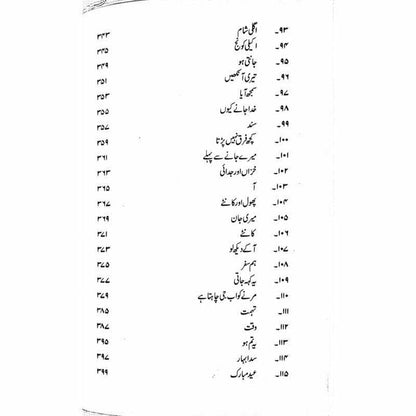 ۹۳۔ اگلی شام ۳۴۳
۹۴۔ اکیلی کونج ۳۴۵
۹۵۔ جانتی ہو ۳۴۹
۹۶۔ تیری آنکھیں ۳۵۱
۹۷۔ سمجھ آیا ۳۵۳
۹۸۔ خدا جانے کیوں ۳۵۵
۹۹۔ سند ۳۵۷
۱۰۰۔ کچھ فرق نہیں پڑتا ۳۵۹
۱۰۱۔ میرے جانے سے پہلے ۳۶۱
۱۰۲۔ خزاں اور جدائی ۳۶۳
۱۰۳۔ آ ۳۶۵
۱۰۴۔ پھول اور کانٹے ۳۶۷
۱۰۵۔ میری جان ۳۶۹
۱۰۶۔ کانٹے ۳۷۱
۱۰۷۔ آ کے دیکھ لو ۳۷۳
۱۰۸۔ ہم سفر ۳۷۵
۱۰۹۔ یہ کہہ جاتی ۳۷۷
۱۱۰۔ مرنے کو اب جی چاہتا ہے ۳۷۹
۱۱۱۔ تہمت ۳۸۵
۱۱۲۔ وقت ۳۸۷
۱۱۳۔ یہ تم ہو ۳۹۵
۱۱۴۔ سدا بہار ۳۹۷
۱۱۵۔ عید مبارک ۳۹۹